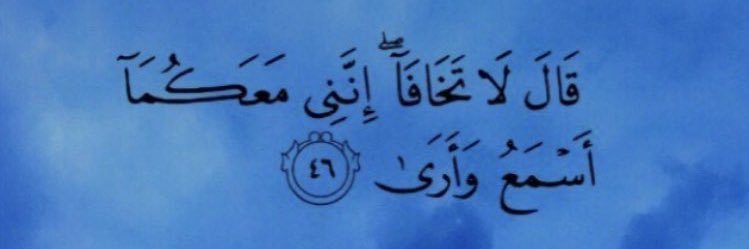 قَالَ لَا تَخَافَآ ۖ إِنَّنِى مَعَكُمَآ
أَسْمَعُ وَأَرَىٰ ٤٦